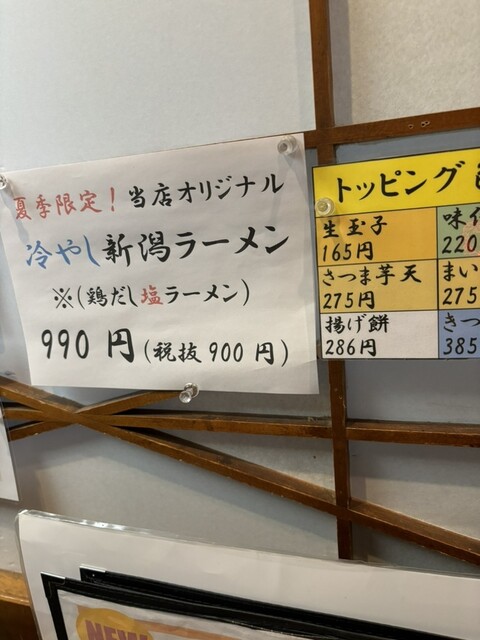 夏季限定！当店オリジナル
冷やし新潟ラーメン
※(鶏だし塩ラーメン)
990円(税抜900円)
トッピング
生玉子
165円
さつま芋天
275円
揚げ餅
286円
味
220
まい
275
きつ
385
NEW